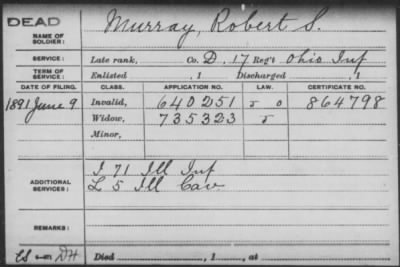 DEAD
NAME OF SOLDIER: Murray, Robert S.
SERVICE: Late rank, Co. D. 17 Reg't Ohio Inf
TERM OF SERVICE: Enlisted , 1 Discharged , 1
DATE OF FILING. CLASS. APPLICATION NO. LAW. CERTIFICATE NO.
1891 June 9 Invalid, 640251 864798
Widow, 735323
Minor,
ADDITIONAL SERVICES: I 71 Ill Inf
L 5 Ill Cav
REMARKS:
Died , 1 , at